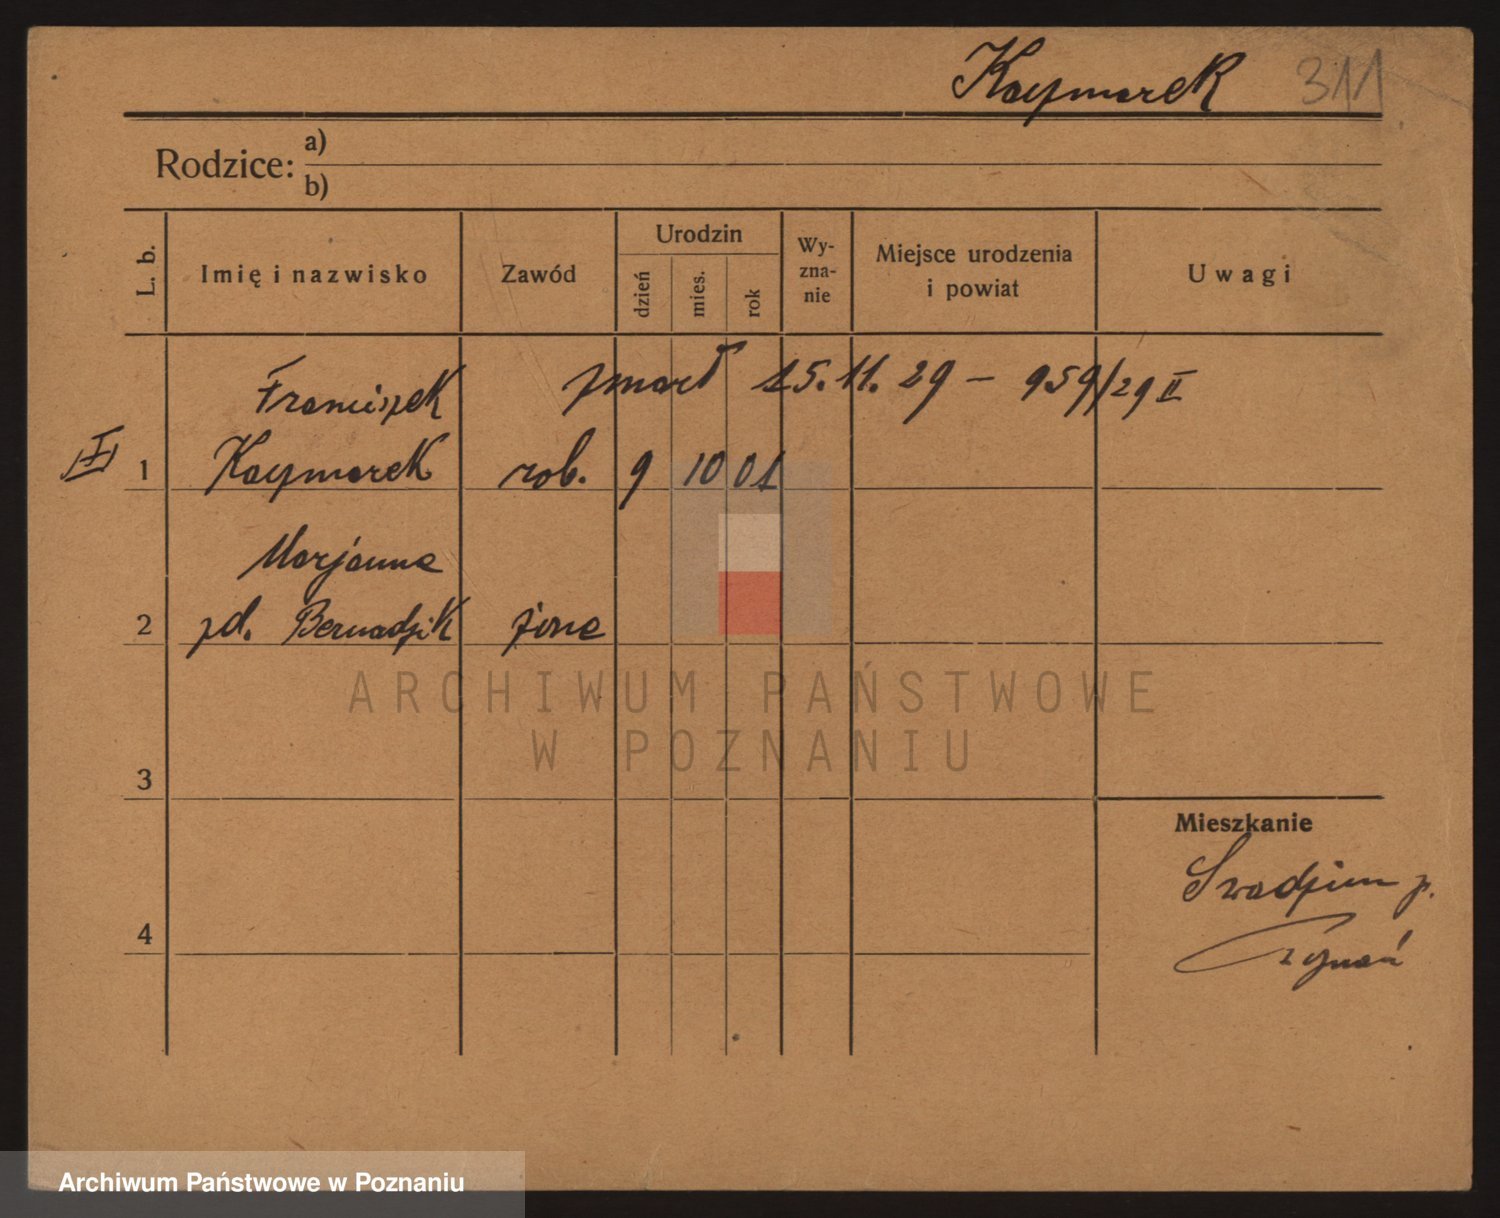 Kaczmarek 311
Rodzice: a)
b)
L. b.
Imię i nazwisko
Zawód
Urodzin
dzień
mies.
rok
Wy-
zna-
nie
Miejsce urodzenia
i powiat
Uwagi
Franciszek zmarł 15.11.29 – 959/29 II
1 Kaczmarek rob. 9 10 01
Marjanna
2 zd. Bernadzik żona
ARCHIWUM PAŃSTWOWE
W POZNANIU
3
Mieszkanie
Swadzim p.
4
Archiwum Państwowe w Poznaniu